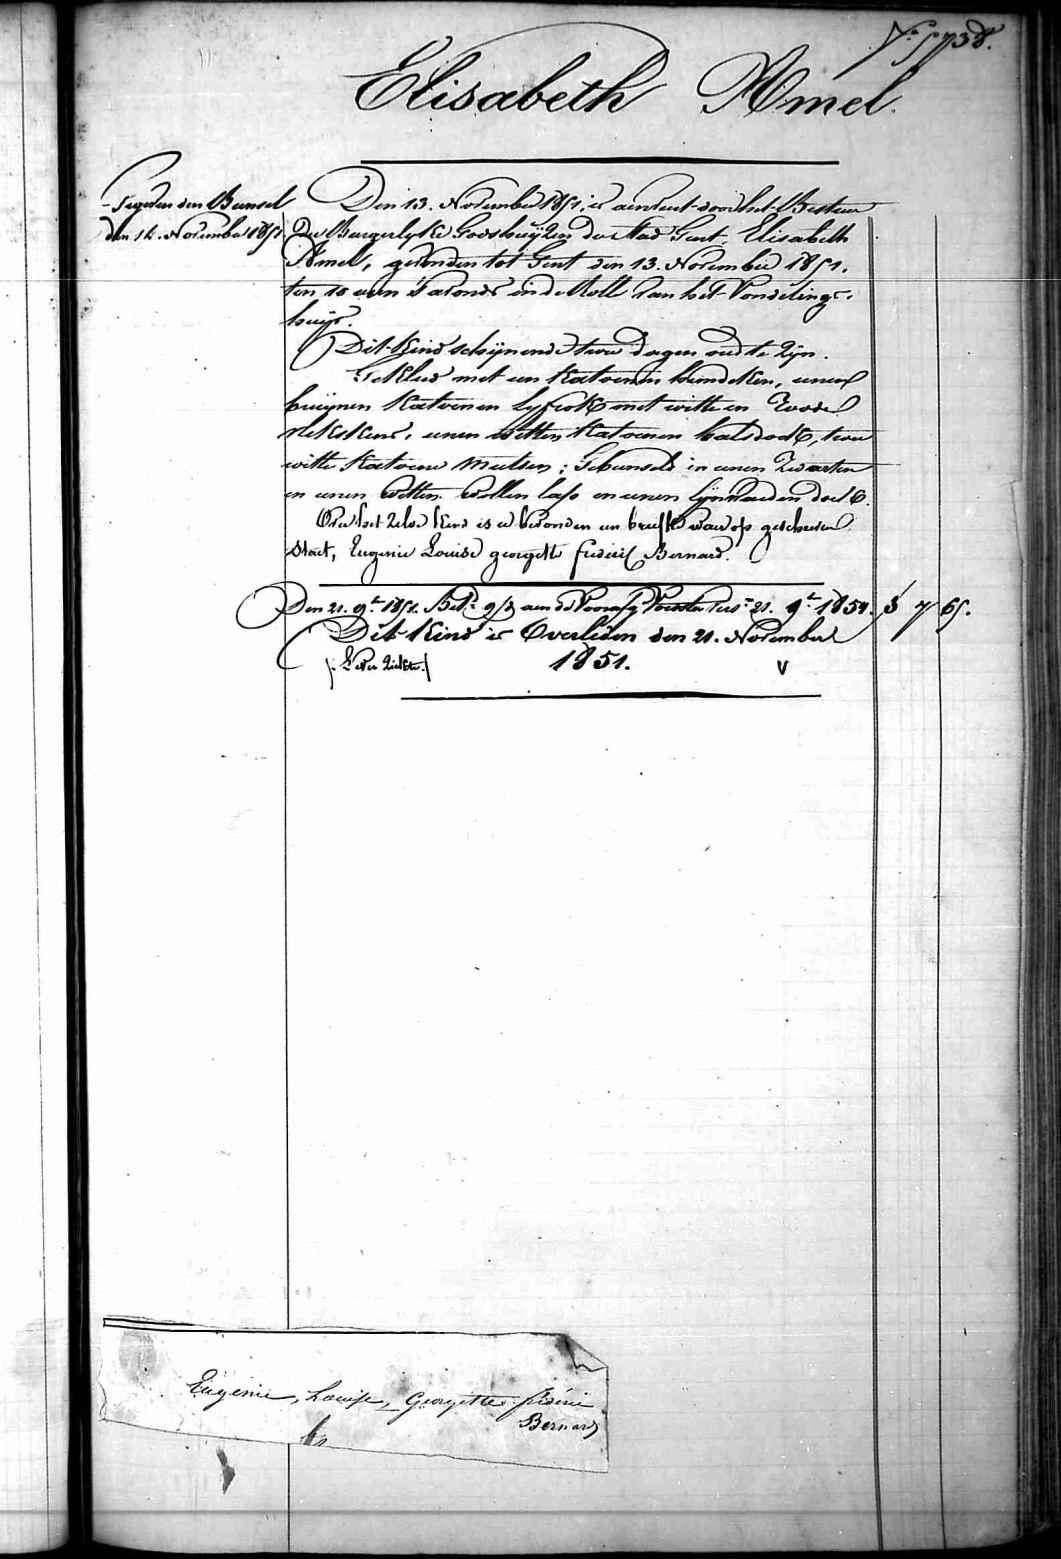 Nº 5738.
Elisabeth Amel.
den Bunsel
den 14. November 1851
Den 13. November 1851, is door het Bestuer
Der Burgerlyke Godshuyzen der Stad Gent, Elisabeth
Amel, gevonden tot Gent den 13. November 1851.
ten 10 uren s'avonds in de Rolle van het Vondelings-
huys.
Dit Kind schijnende twee dagen oud te zyn.
Gekleed met een Katoenen hemdeken, eenen
bruijnen Katoenen Lyfrok met witte en Roode
Plekskens, eenen witten Katoenen halsdoek, twee
witte Katoene Mutsen; Gebunseld in eenen Zwarten
en eenen Witten Wollen lap en eenen Lynwaeden doek.
Over het Zelve Kind is er bevonden een briefke waer op geschreven
Staet, Eugenie Louise georgette frederic Bernard.
Den 21. 9br 1851. aen de 21. 9br 1851. 3 7 65.
Dit Kind is Overleden den 21. November
1851. v
Eugenie, Louise, Georgette
Bernard